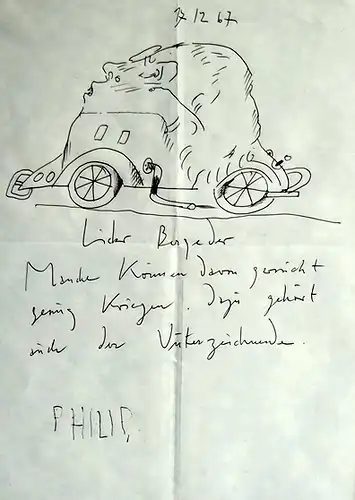 12 67
Lieber Bergeder
Manche Können davon garnicht
genug Kriegen. Dazu gehört
auch der Unterzeichnende.
PHILIP,